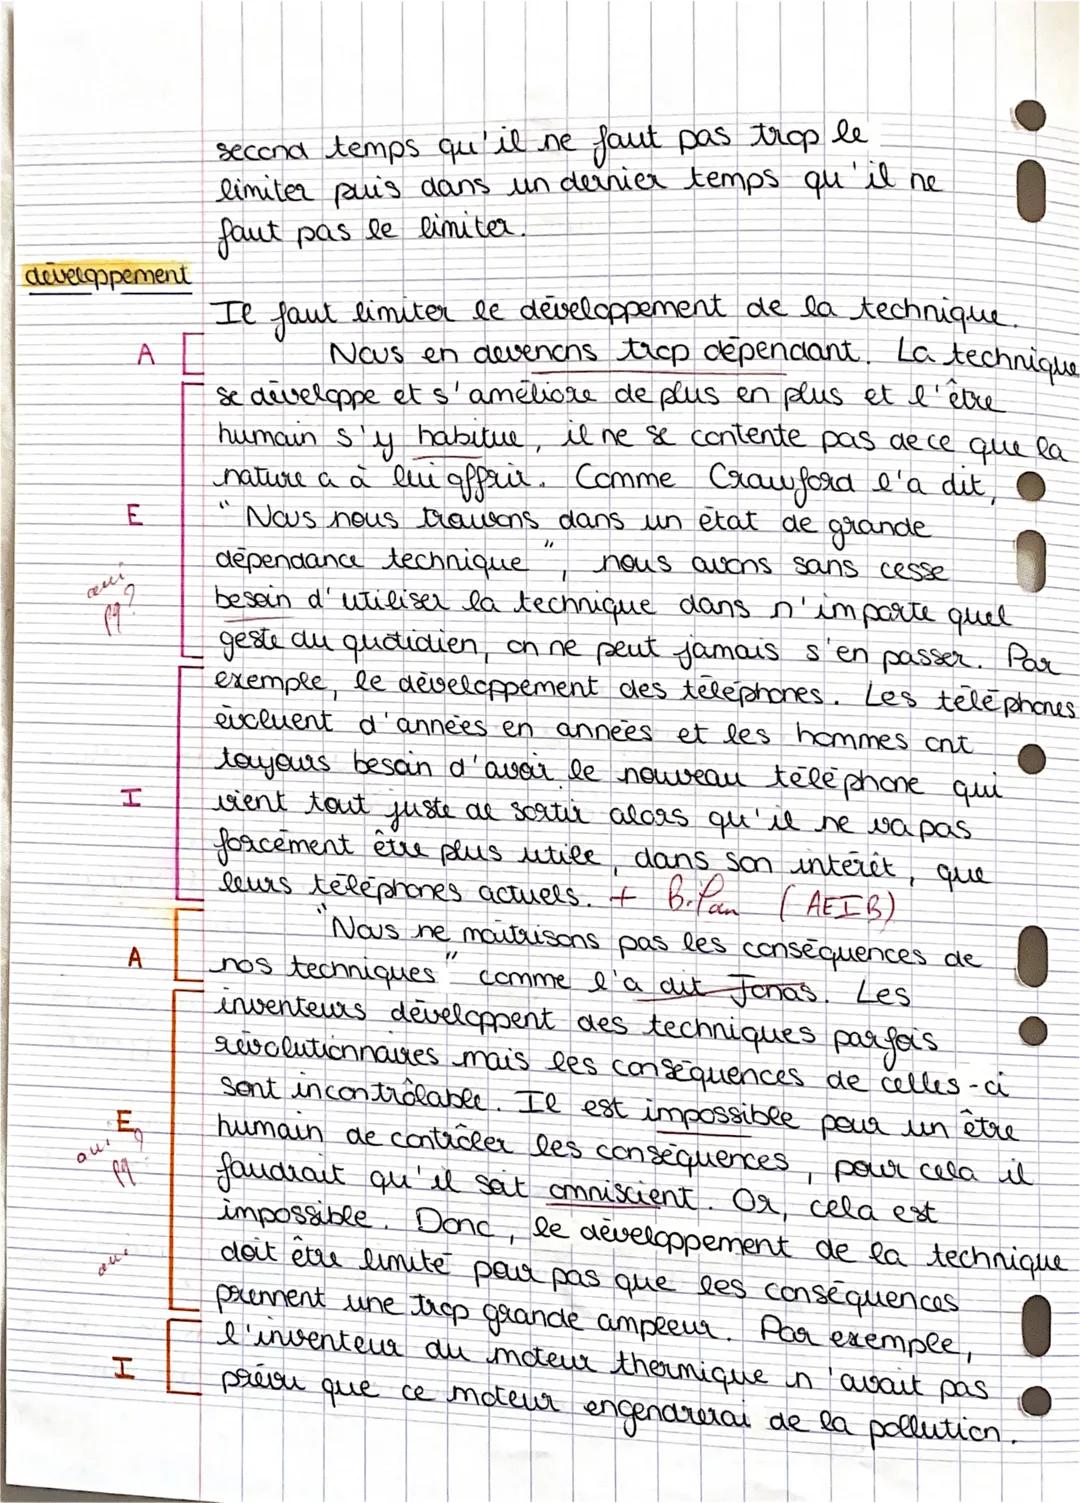 second temps qu'il ne faut pas trop le
limiter puis dans un dernier temps qu'il ne
faut pas le limiter.
développement
Il faut limiter le développement de la technique.
A Nous en devenons trop dépendant. La technique
se développe et s'améliore de plus en plus et l'être
humain s'y habitue, il ne se contente pas de ce que la
nature a à lui offrir. Comme Crawford l'a dit,
E "Nous nous trouvons dans un état de grande
dépendance technique", nous avons sans cesse
oui besoin d'utiliser la technique dans n'importe quel
pq? geste du quotidien, on ne peut jamais s'en passer. Par
exemple, le développement des téléphones. Les téléphones
évoluent d'années en années et les hommes ont
toujours besoin d'avoir le nouveau téléphone qui
I vient tout juste de sortir alors qu'il ne va pas
forcément être plus utile, dans son intérêt, que
leurs téléphones actuels. + Bilan (AEIB)
"Nous ne maîtrisons pas les conséquences de
A nos techniques" comme l'a dit Jonas. Les
inventeurs développent des techniques parfois
révolutionnaires mais les conséquences de celles-ci
sont incontrôlable. Il est impossible pour un être
E humain de contrôler les conséquences, pour cela il
oui, pq? faudrait qu'il soit omniscient. Or, cela est
impossible. Donc, le développement de la technique
oui doit être limité pour pas que les conséquences
prennent une trop grande ampleur. Par exemple,
I l'inventeur du moteur thermique n'avait pas
prévu que ce moteur engendrerai de la pollution.